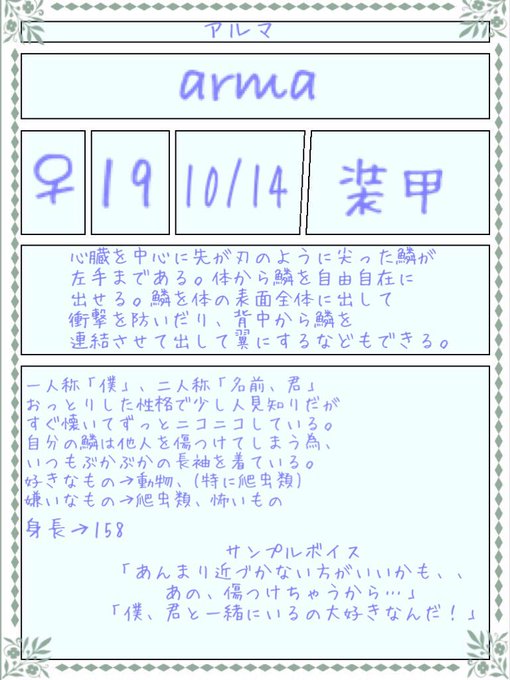 アルマ
arma
♀ 19 10/14 装甲
心臓を中心に先が刃のように尖った鱗が
左手まである。体から鱗を自由自在に
出せる。鱗を体の表面全体に出して
衝撃を防いだり、背中から鱗を
連結させて出して翼にするなどもできる。
一人称「僕」、二人称「名前、君」
おっとりした性格で少し人見知りだが
すぐ懐いてずっとニコニコしている。
自分の鱗は他人を傷つけてしまう為、
いつもぶかぶかの長袖を着ている。
好きなもの→動物、(特に爬虫類)
嫌いなもの→爬虫類、怖いもの
身長→158
サンプルボイス
「あんまり近づかない方がいいかも、、
あの、傷つけちゃうから…」
「僕、君と一緒にいるの大好きなんだ！」